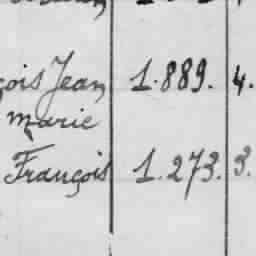 çois Jean 1.889. 4.
marie
François 1.273. 3.